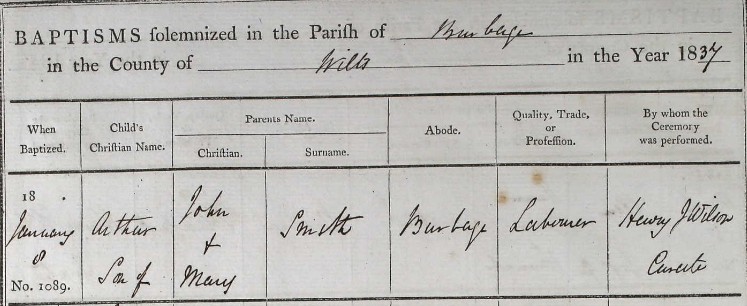 BAPTISMS solemnized in the Parish of Burbage
in the County of Wilts in the Year 1837
When Baptized. Child's Christian Name. Parents Name. Abode. Quality, Trade, or Profession. By whom the Ceremony was performed.
Christian. Surname.
18
January
8
No. 1089.
Arthur
Son of
John
&
Mary
Smith
Burbage
Labourer
Henry J Wilson
Curate